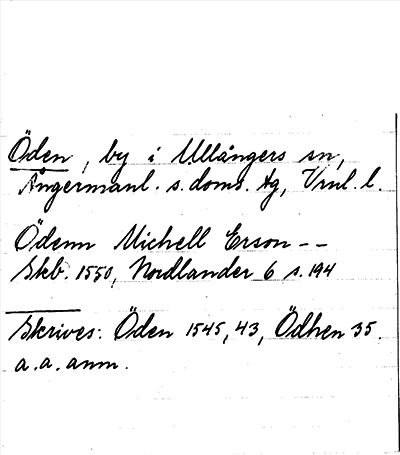 Öden, by i Ullångers sn,
Ångermanl. s. doms. Åg, Vrnl. l.
Ödenn Michell Erson --
Skb. 1550, Nordlander 6 s. 194
Skrives: Öden 1545, 43, Ödhen 35.
a. a. anm.